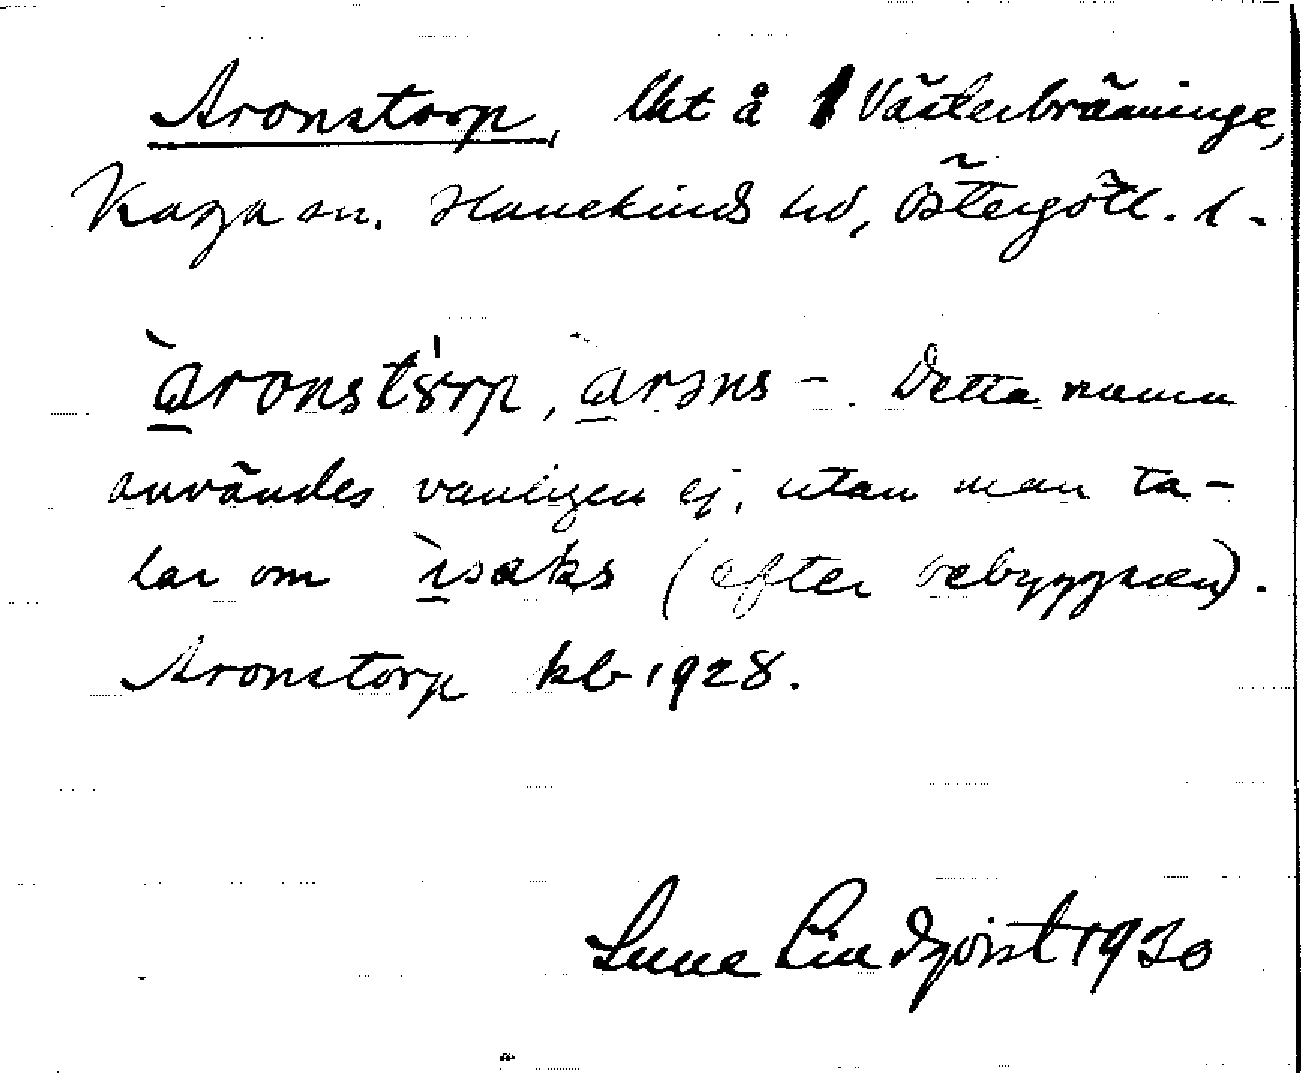 Aronstorp, lht å Västerbränninge,
Kaga sn. Hanekinds hd, Östergötl. l.
àronstörp, àrəns -. Detta namn
användes vanligen ej, utan man ta-
lar om ìsaks (efter bebyggaren).
Aronstorp kb 1928.
Sune Lindqvist 1930